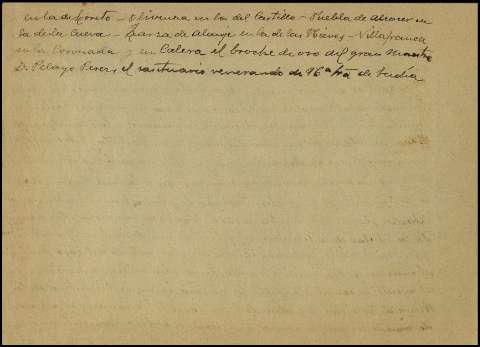 en la de Loreto - Olivenza en la del Castillo - Puebla de Alcocer en
la de la Cueva - Zarza de Alange en la de las Nieves - Villafranca
en la Coronada y en Calera el broche de oro del gran Maestre
D. Pelayo Perez, el santuario venerando de Ntra Sra de Tudia